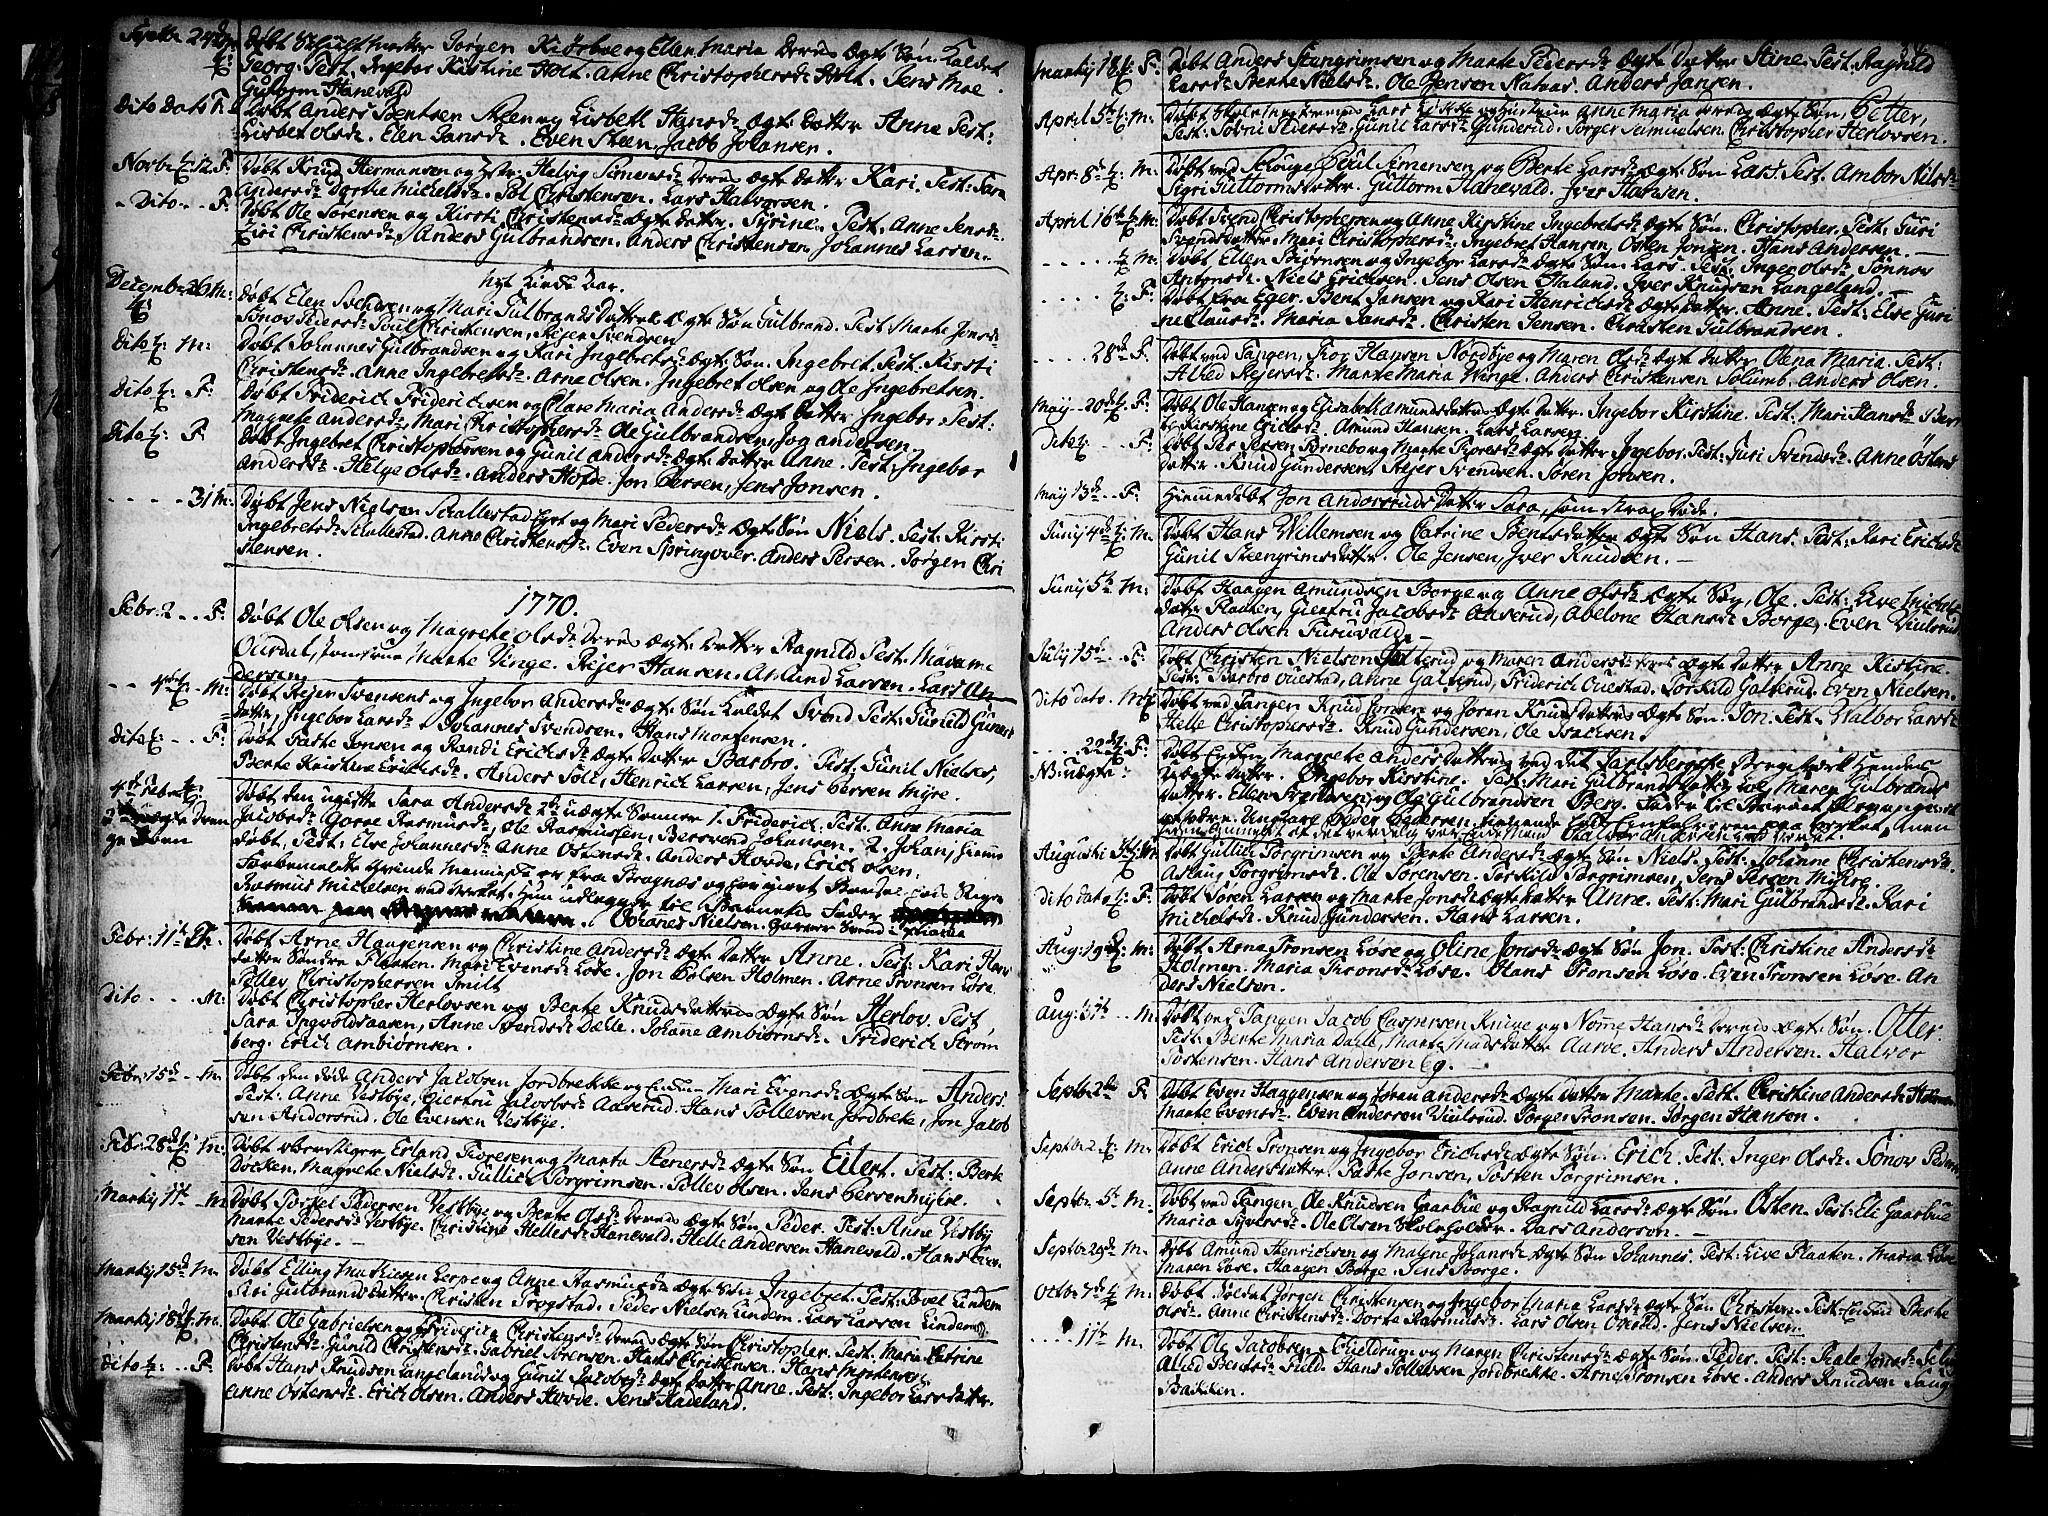 Septbr 24de Døbt Skultmester Jørgen Kiørboe og Ellen Maria deres Ægte Søn kaldet
Georg. Test. Ingebor Kistine Holt. Anne Christophersdr Holt. Jens Moe.
Gulborn Hanevald
Dito Dato F. Døbt Anders Bentsen Steen og Lisbett Hansdr Ægte Datter Anne Test:
Lisbet Olsdr. Elen Jansdr. Even Steen, Jacob Johansen.
Novbr 12. F: Døbt Knud Hermansen og Helvig Simensdr deres ægte datter Kari. Test: Sara
Andersdr Dorthe Michelsdr. Pol Christensen. Lars Halvorsen.
Dito - F: Døbt Ole Sørensen og Kirsti Christensdr ægte datter. Syrine. Test: Anne Jensdr.
Siri Christensdr, Anders Gulbrandsen. Anders Christensen, Johannes Larsen.
nyt Kirke aar.
Decembr 26 M: Døbt Elen Svensen og Mari Gulbrands Datter Ægte Søn Gulbrand. Test: Marte Jonsdr
Sønov Pedersdr. Poul Christensen, Reier Svendsen
Dito M: Døbt Johannes Gulbrandsen og Kari Ingebretsdr ægte Søn. Ingebret. Test: Kirsti
Christensdr. Anne Ingebretsdr. Arne Olsen. Ingebret Olsen og Ole Ingebretsen.
Dito F: Døbt Friderich Friderichsen og Clare Maria Andersdr Ægte Datter Ingebor Test:
Magrete Andersdr, Mari Christophersdr. Ole Gulbrandsen, Jon Andersen
Dito F: Døbt Ingebret Christophersen og Gunil Andersdr Ægte Datter Anne. Test: Ingebor
Andersdr. Helge Olsdr. Anders Hofde. Jon Persen, Jens Jonsen.
- - - 31 M: Døbt Jens Nielsen Schallestad og Mari Pedersdr Ægte Søn Niels. Test: Kirsti
Ingebretsdr Schallestad. Anne Christensdr. Even Springover. Anders Persen. Jørgen Chri
stensen.
1770.
Febr: 2 - - F: Døbt Ole Olsen og Magrete Olsdr Deres Ægte Datter Ragnild Test: Madame
Ourdal, Jomfrue Marte Vinge. Reier Hansen. Amund Larsen. Lars An
dersen
- - 4de M: Døbt Reier Svensen og Ingebor Andersdr Ægte Søn kaldet Svend Test: Gunild Guner
datter, Ingebor Larsdr Johannes Svendsen. Hans Mortensen.
Dito - - F: Døbt Taste Jonsen og Randi Ericksdr Ægte Datter Barbro. Test: Gunil Nielsdr,
Berte Kristine Ericksdr. Anders Sole, Henrich Larsen, Jens Persen Myre.
4de Febr: Døbt den ugifte Sara Andersdr 2de uægte Sønner 1. Friderich: Test: Anne Maria
2de uægte Dren Jacobsdr. Gorve Rasmusdr, Ole Rasmussen, Bersvend Johansen. 2. Johan, hiemme
ge Børn døbt, Test: Else Johannesdr Anne Østensdr. Anders Hovde, Erich Olsen.
Forbemeldte Qvinde Menniske er fra Bragnæs
Rasmus Michelsen ved Verket. Hun udlegger til Barnets Fader
Johanes Nielsen
Febr: 11te F. Døbt Arne Haagensen og Christine Andersdr Ægte Datter Anne. Test: Kari Hans
datter Søndre Plaaten. Mari Evensdr Løse. Jon Polsen Holmen. Arne Tronsen Løse.
Tollev Christophersen Smilt
Dito - - - M. Døbt Christopher Herlovsen og Berte Knudsdatter deres Ægte Søn Herlov. Test
Sara Ingvoldsaasen, Anne Svendsdr Dælle. Johanne Ambiørnsdr. Friderich Strøm
berg. Erich Ambiørnsen.
Febr: 15de - M: Døbt den døde Anders Jacobsen Jordbrekke og Mari Evensdr Ægte Søn Anders
Test: Anne Vestbye, Giertru Jacobsdr Aaserud. Hans Tollevsen Jordbreke, Jon Jacob
sen Andorsrud. Ole Evensen Vestbye.
Feb: 28de M: Døbt Erland Toresen og Marta Stenersdr Ægte Søn Eilert. Test: Berte
Docken, Magrete Nielsdr. Gullic Torgrimsen. Tollev Olsen. Jens Persen Myhre.
Martij 11te M Døbt Torkel Pedersen Vestbye og Berte Olsdr deres Ægte Søn Peder. Test: Anne Vestby
Marte Pedersdr Vestbye. Christine Hellesdr Hanevald. Helle Andersen Hanevald. Hans Even
sen Vestbye.
Martij 15de M. Døbt Elling Mathiesen Lerpe og Anne Rasmusdr Ægte Søn Ingebret. Test: Jovel Lindem
Siri Gulbrandsdatter. Christen Frogstad. Peder Nielsen Lindem. Lars Larsen Lindem
Martij 18de M. Døbt Ole Gabrielsen og Friderica Christensdr Deres Ægte Søn Christopher. Test: Maria Catrine
Christensdr. Gunild Christensdr. Gabriel Sørensen. Hans Christensen. Hans Mortensen.
Dito - - F. Døbt Hans Knudsen Langeland og Gunil Jacobsdr Ægte Datter Anne. Test: Ingebor Larsdatter
Anne Østensdr. Erich Olsen. Anders Hovde. Jens Hadeland.
Martij 18 F: Døbt Anders Stengrimsen og Marte Pedersdr Ægte Datter Stine. Test: Ragnild
Larsdr Berte Nielsdr. Ole Jensen Natvas. Anders Jansen.
April 5te M: Døbt Lars og Anne Maria deres Ægte Søn, Petter,
Test: Gunil Larsdr Gunderud. Torger Samuelsen. Christopher Herlovsen.
Apr: 8de M: Døbt ved Schouge Poul Simensen og Berte Larsdr Ægte Søn Lars. Test: Ambor Nilsdr
Sigri Guttormsdatter. Guttorm Hanevald. Iver Hansen.
April 16te M: Døbt Svend Christophersen og Anne Kirstine Ingebretsdr Ægte Søn. Christopher. Test: Guri
Svendsdatter. Mari Christophersdr. Ingebret Hansen. Osten Jonsen. Hans Andersen.
- - - M: Døbt Ellen Biørnsen og Ingebor Larsdr Ægte Søn Lars. Test: Inger Olsdr Sønnov
Antonsdr. Niels Erichsen. Jens Olsen Haland. Iver Knudsen Langeland.
- - - F: Døbt fra Eger. Bent Jansen og Kari Henrichsdr Ægte datter. Anne. Test: Else Guri
ne Clausdr. Maria Jansdr. Christen Jensen. Christen Gulbrandsen.
- - - 28de F: Døbt ved Tangen, Tor Hansen Nordbye og Maren Olsdr Ægte datter Olena Maria. Test:
Alhed Reiersdr. Marte Maria Winge. Anders Christensen Solumb. Anders Olsen.
Maij - 20de F: Døbt Ole Hansen og Elisabeth Amundsdatter Ægte datter. Ingebor Kirstine. Test: Mari Hansdr
Kirstine Ericksdr. Amund Hansen. Lars Larsen
Dito - - F: Døbt Per Persen Børnebo og Marte Toresdr Ægte datter Ingebor. Test: Guri Svendsdr. Anne Østens
datter. Knud Gundersen, Reier Svendsen. Søren Jonsen.
Maij 13de F: Hiemmedøbt Jon Andorsruds Datter Sara, som strax døde.
Junij 4de M: Døbt Hans Willemsen og Catrine Bentsdatter Ægte Søn Hans. Test: Kari Ericksdr
Gunil Steengrimsdatter. Ole Jensen, Iver Knudsen.
Junij 5te M: Døbt Haagen Amundsen Borge og Anne Olsdr Ægte Søn, Ole. Test: Live Michels
datter Plaaten, Giertru Jacobsdr Aaserud, Abelone Hansdr Borge, Even Viulsrud
Anders Olsen Furuvald.
July 15de F: Døbt Christen Nielsen Galterud og Maren Andersdr deres Ægte Datter Anne Kistine.
Test: Barbro Ouestad, Anne Galterud, Friderich Ouestad, Torkild Galterud, Even Nielsen.
Dito dato. M Døbt ved Tangen Knud Jonsen og Joran Knudsdatter Ægte Søn. Jon. Test: Walbor Larsdr
Helle Christophersdr. Knud Gundersen, Ole Isachsen.
- - 22de F. Døbt Magrete Andersdatter ved det Jarlsbergske Bergverk Hendes
NB: uægte. Uægte datter. Ingebor Kirstine. Test: Mari Gulbrandsdatter Maren Gulbrands
datter. Ellen Svendsen og Ole Gulbrandsen Berg. Fader til Barnet
Ungkarl Peder Pedersen
Augusti 5te M. Døbt Gullich Torgrimsen og Berte Andersdr Ægte Søn Niels. Test: Johanne Christensdr.
Aslaug Torgrimsdr. Ole Sørensen. Torkild Torgrimsen, Jens Persen Myhre.
Dito dato F: Døbt Søren Larsen og Marte Jonsdr Ægte datter Anne. Test: Mari Gulbrandsdr. Kari
Michelsdr. Knud Gundersen. Hans Larsen.
Aug: 19de M: Døbt Arne Tronsen Løse og Oline Jonsdr Ægte Søn Jon. Test: Christine Andersdr
Holmen. Maria Tronsdr Løse. Hans Tronsen Løse. Even Tronsen Løse. An
ders Nielsen.
Aug: 31te M: Døbt ved Tangen Jacob Caspersen Knive og Nonne Hansdr deres ægte Søn. Otter.
Test: Berte Maria Dælle, Marte Madsdatter Aarve. Anders Andersen. Halvor
Tostensen. Hans Andersen Eg.
Septbr 2den F. Døbt Even Haagensen og Jøran Andersdr Ægte datter Marte. Test. Christine Andersdr Holmen
Marte Evensdr. Even Andersen Viulsrud. Torger Tronsen. Jørgen Hansen.
Septbr 2 M: Døbt Erich Tronsen og Ingebor Erichsdr Ægte Søn. Erich. Test: Inger Olsdr. Sønov Peders
Anne Andersdatter. Taste Jonsen, Tosten Torgrimsen.
Septbr. 5te M: Døbt ved Tangen, Ole Knudsen Gaarbue og Ragnild Larsdr Ægte Søn. Østen. Test: Eli Gaarbue
Maria Syversdr. Ole Olsen Lars Anderson.
Septbr 29de M: Døbt Amund Henrichsen og Malene Johansdr Ægte Søn Johannes. Test: Live Plaaten. Maria Løse
Maren Løse. Haagen Borge. Jens Borge.
Octbr 7de M: Døbt Soldat Jørgen Christensen og Ingebor Maria Larsdr Ægte Søn Christen. Test: Berte
Olsdr. Anne Christinsdr. Dorte Rasmusdr. Lars Olsen Jens Nielsen.
- - - 11te M: Døbt Ole Jacobsen og Maren Christensdr Ægte Søn. Peder. Test: Jonsdr
Alhed Bentsdr. Hans Tollefsen Jordbrekke. Arne Tronsen Løse. Anders Knudsen
Backen.